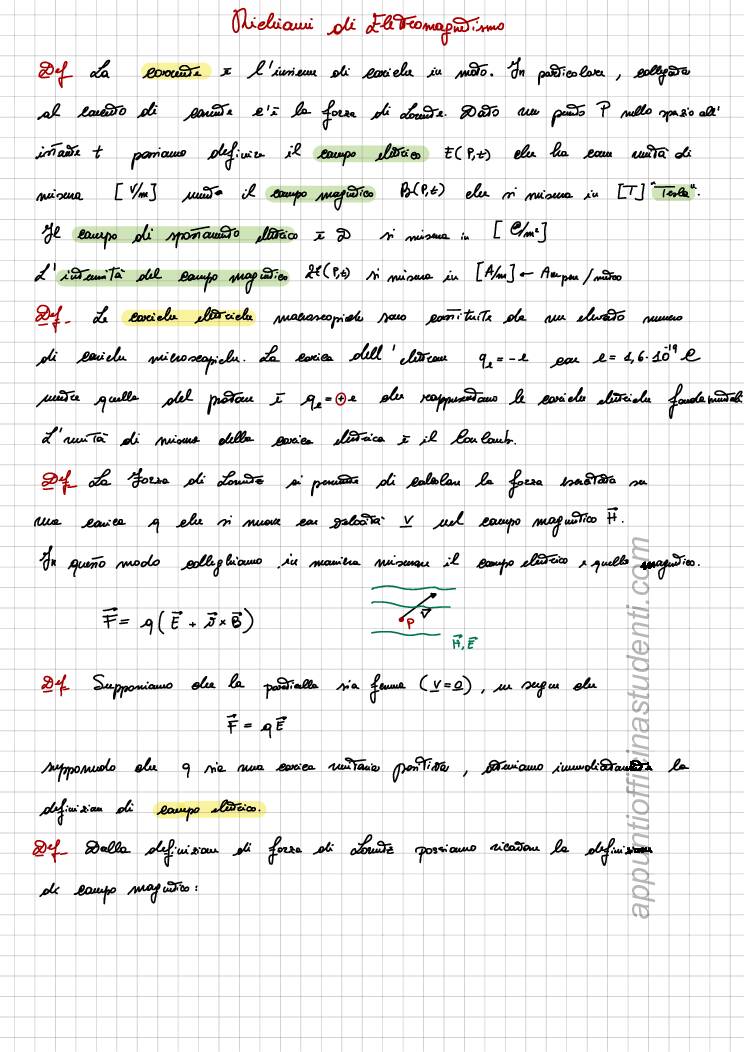 Richiami di Elettromagnetismo
Def La corrente è l'insieme di cariche in moto. In particolare, collegata
al concetto di corrente c'è la forza di Lorentz. Dato un punto P nello spazio all'
istante t possiamo definire il campo elettrico E(P,t) che ha come unità di
misura [V/m] mentre il campo magnetico B(P,t) che si misura in [T] "Tesla".
Il campo di spostamento elettrico è D si misura in [C/m²]
L'intensità del campo magnetico H(P,t) si misura in [A/m] ← Ampere/metro
Def. Le cariche elettriche macroscopiche sono costituite da un elevato numero
di cariche microscopiche. La carica dell'elettrone qe = -e con e = 1,6·10⁻¹⁹ C
mentre quella del protone è qe = + e che rappresentano le cariche elettriche fondamentali
L'unità di misura della carica elettrica è il Coulomb.
Def La Forza di Lorentz ci permette di calcolare la forza esercitata su
una carica q che si muove con velocità v nel campo magnetico H⃗.
In questo modo colleghiamo in maniera il campo elettrico e quello magnetico.
F⃗ = q(E⃗ + v⃗ × B⃗)
P v⃗
H⃗, E⃗
Def Supponiamo che la particella sia ferma (v=0), ne segue che
F⃗ = qE⃗
supponendo che q sia una carica unitaria positiva, otteniamo immediatamente la
definizione di campo elettrico.
Def Dalla definizione di forza di Lorentz possiamo ricavare la definizione
di campo magnetico:
appuntiofficinastudenti.com